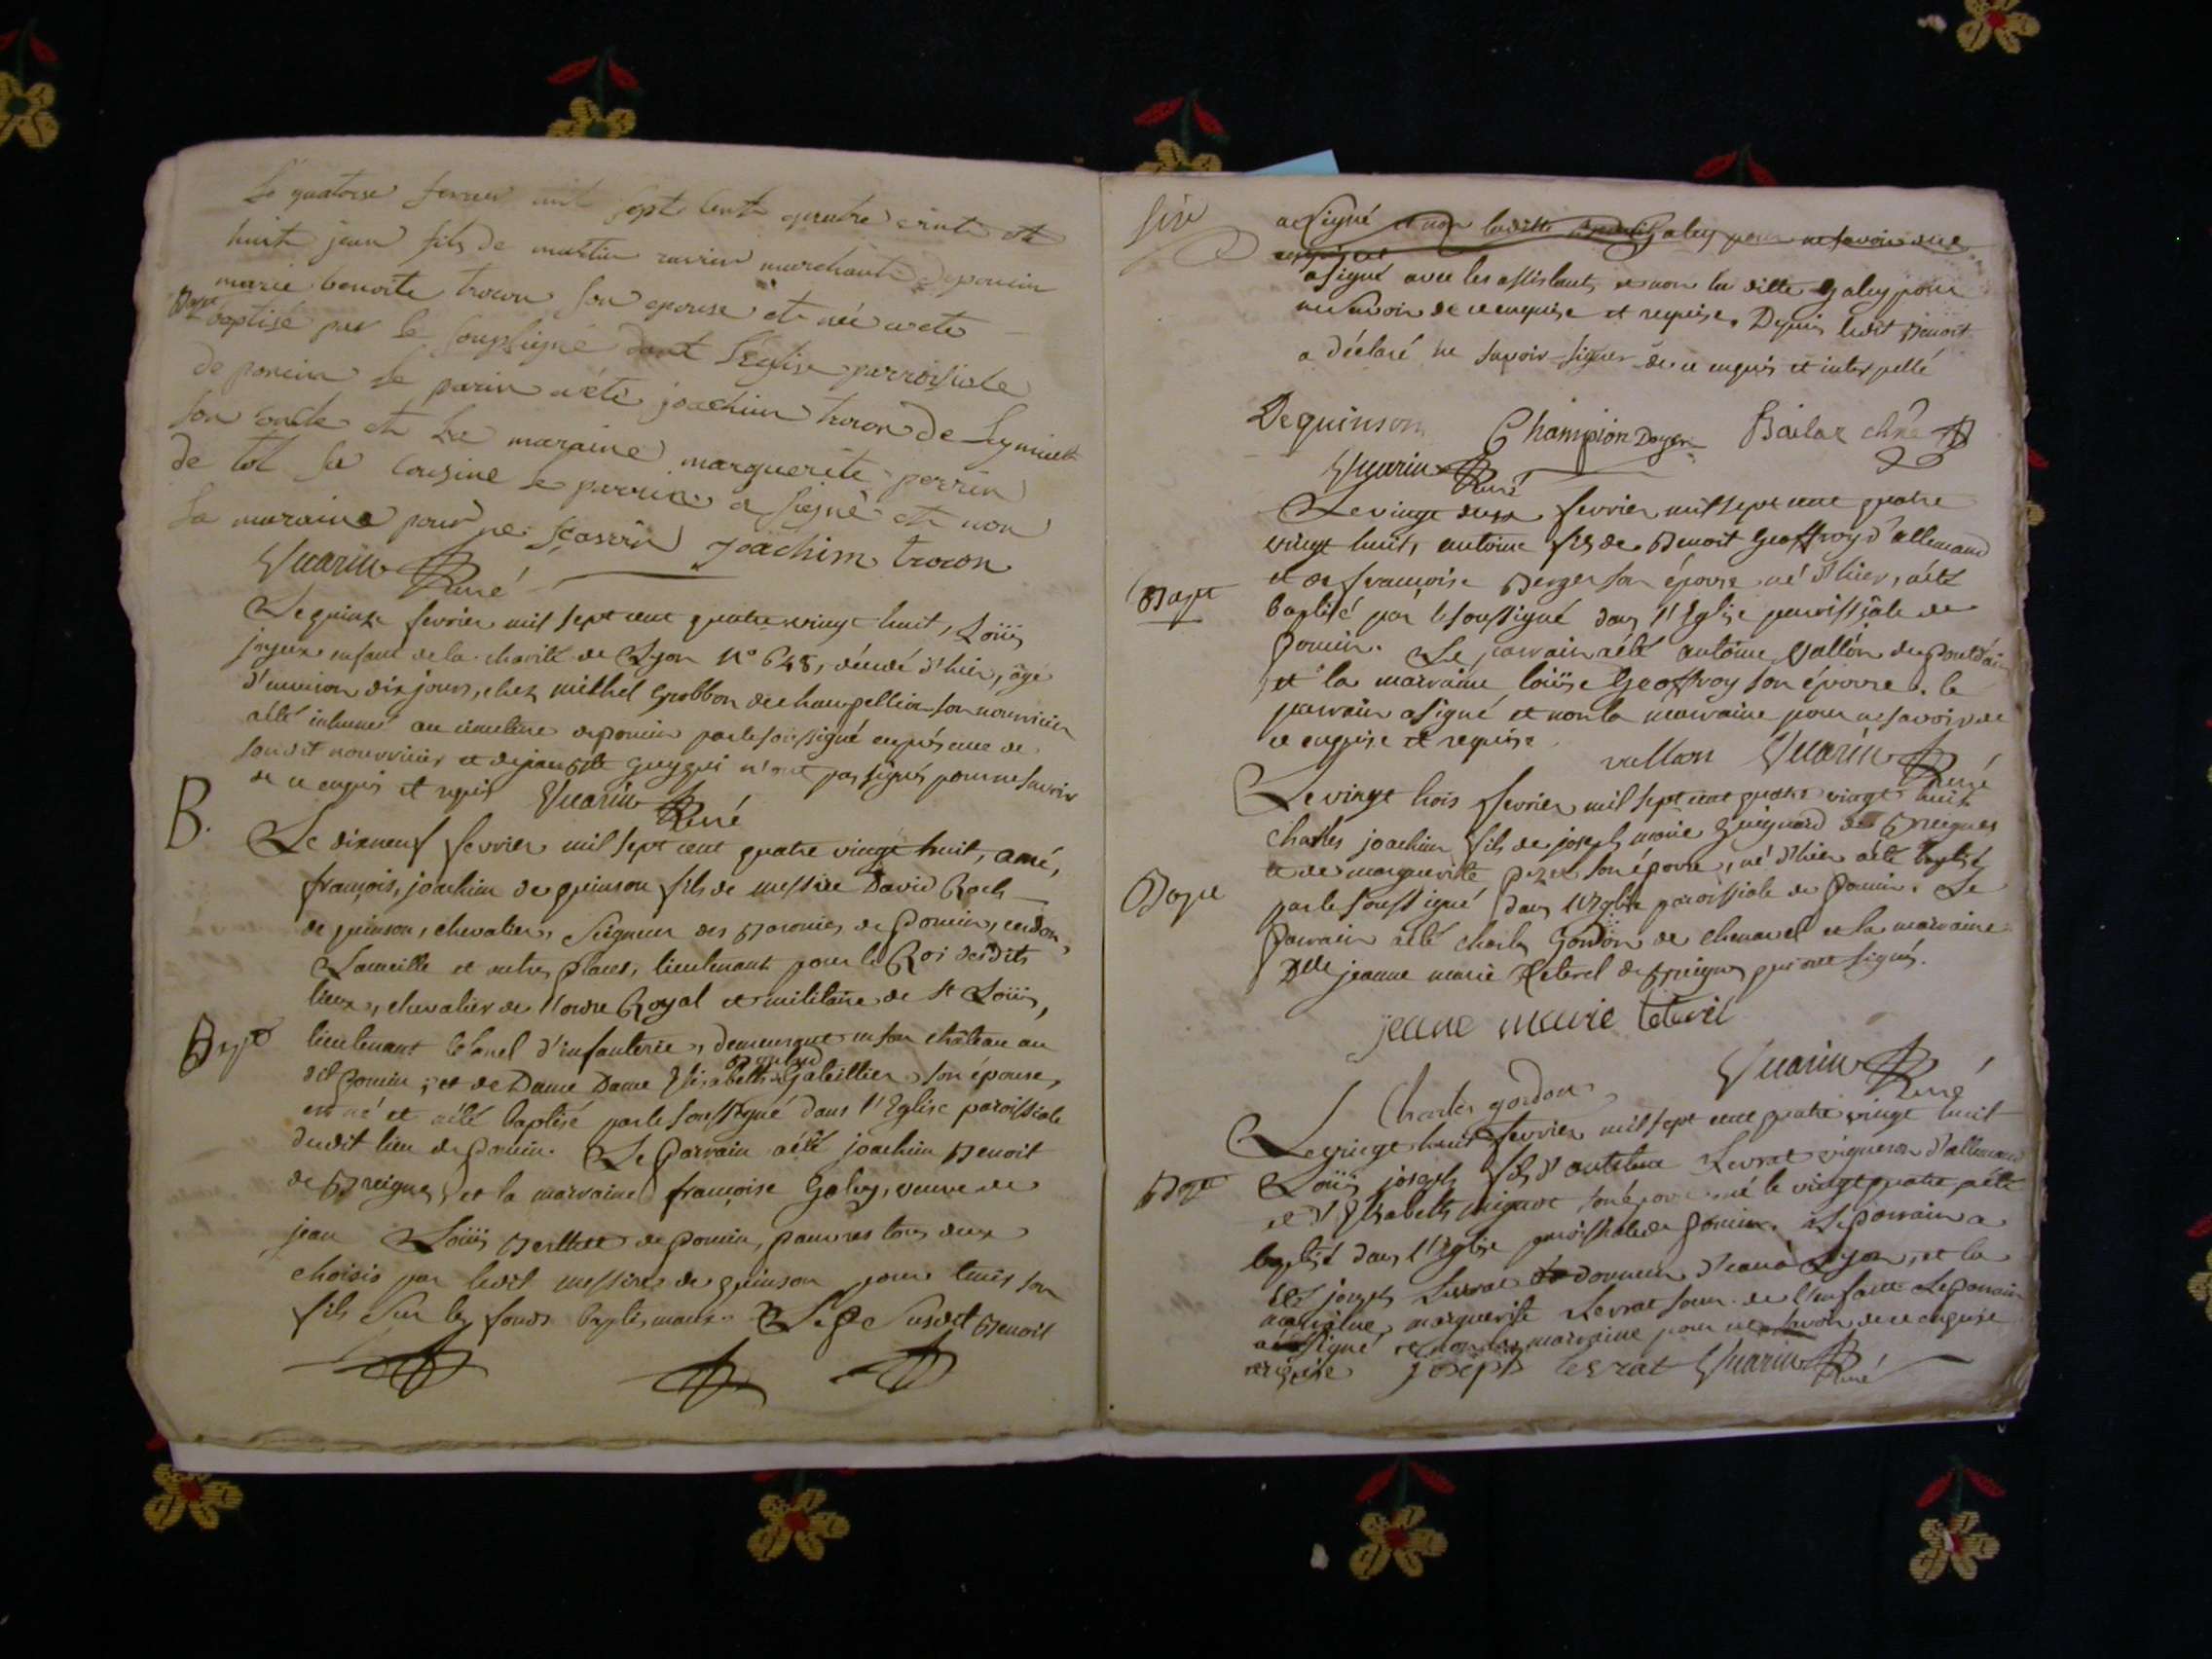 Le quatorse fevrier mil sept cent quatre vint et
huit jean fils de martin ravier marchant de poncin
marie benoite trocon son epouse et né a ete
Bapt
baptisé par le soussigné dant l'Eglise parroissiale
de poncin le parin a été joachim trocon de Leyment
son oncle et La maraine marguerite perrin
de tol sa cousine Le parrin a signé et non
La maraine pour ne sçavoir Joachim trocon
Vuarin Curé
Le quinze fevrier mil sept cent quatre vingt huit, Loüis
joyeux enfant de la charité de Lyon N° 648, décédé d'hier, âgé
d'environ dix jours, chez michel Grobbon de champellion son nourricier
a été inhumé au cimetiere de poncin par le soussigné en présence de
son dit nourricier et de jean Bte guy qui n'ont pas signés pour ne savoir
de ce enquis et requis Vuarin Curé
B.
Le dixneuf fevrier mil sept cent quatre vingt huit, amé,
françois, joachim de quinson fils de messire David Roch
de quinson, chevalier, Seigneur des Baronies de Poncin, cerdon,
et autres places, lieutenant pour le Roi desdits
lieux, chevalier de l'ordre Royal et militaire de St Loüis,
Bapt
lieutenant Colonel d'infanterie, demeurant en son château au
dit Poncin; et de Dame Dame Elisabeth Galtillier son épouse,
est né et a été baptisé par le soussigné dans l'Eglise paroissiale
dudit lieu de Poncin. Le Parrain a été joachim Benoit
de Breignes et la marraine françoise Galey, veuve de
jean Loüis Berthet de poncin, pauvres tous deux
choisis par ledit messire de quinson pour tenir son
fils sur les fonds baptismaux. Le susdit Benoit
a signé et non laditte Galey pour ne savoir de ce
requise
a signé avec les assistants, et non la ditte Galey pour
ne savoir de ce enquise et requise. Depuis ledit Benoit
a déclaré ne savoir signer de ce enquis et interpellé
Dequinson Champion Doyen Bailat chne
Vuarin Curé
Le vingt deux fevrier mil sept cent quatre
vingt huit, antoine fils de Benoit Geoffroy d'allemand
et de françoise Berger son épouse né d'hier, a été
Bapt
baptisé par le soussigné dans l'Eglise paroissiale de
Poncin. Le parrain a été antoine Vallon du Pontdain
et la marraine loüise Geoffroy son épouse. le
parrain a signé et non la marraine pour ne savoir de
ce enquise et requise
vallon Vuarin Curé
Le vingt trois fevrier mil sept cent quatre vingt huit
charles joachim fils de joseph marie Guignard de Breignes
et de marguerite son épouse, né d'hier a été baptisé
Bapt
par le soussigné dans l'Eglise paroissiale de Poncin. Le
Parrain a été charles Gordon de chenavel et la marraine
Dlle jeanne marie teterel de Breignes qui ont signés.
jeane marie teterel
Charles gordon Vuarin Curé
Le vingt huit fevrier mil sept cent quatre vingt huit
Bapt
Loüis joseph fils d'anthelme Levrat vigneron d'allemand
et d'Elisabeth mignot son épouse né le vingt quatre a été
baptisé dans l'Eglise paroissiale de Poncin. Le parrain a
été joseph Levrat donneur d'eau à Lyon, et la
marraine, marguerite Levrat soeur de l'enfant. Le parrain
a signé et non la marraine pour ne savoir de ce enquise
requise joseph levrat Vuarin Curé